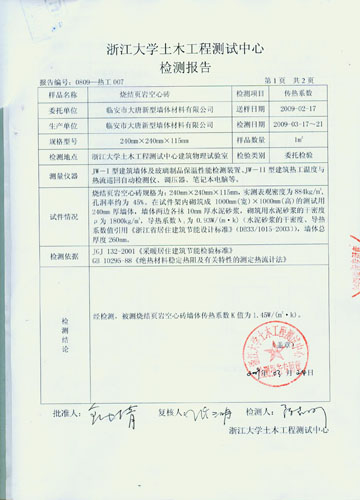 浙江大学土木工程测试中心
检测报告
报告编号：0809—热工007
第1页 共2页
样品名称 烧结页岩空心砖 检测项目 传热系数
委托单位 临安市大唐新型墙体材料有限公司 送样日期 2009-02-17
生产单位 临安市大唐新型墙体材料有限公司 检测日期 2009-03-17~21
规格型号 240mm×240mm×115mm 样品数量 1m²
检测地点 浙江大学土木工程测试中心建筑物理试验室 检验类别 委托检验
测量仪器 JW-I型建筑墙体及玻璃制品保温性能检测装置、JW-II型建筑热工温度与
热流巡回自动检测仪、调压器、笔记本电脑等。
试件情况
烧结页岩空心砖规格为：240mm×240mm×115mm，实测表观密度为884kg/m³，
孔洞率约为 45%。在试件架内砌筑成 1000mm(宽)×1000mm(高)的测试用
240mm 厚墙体，墙体两边各抹 10mm 厚水泥砂浆。砌筑用水泥砂浆的干密度
ρ为 1800kg/m³，导热系数λ为 0.93W/(m·k)（水泥砂浆的干密度、导热
系数值引用《浙江省居住建筑节能设计标准》(DB33/1015-2003)），墙体总
厚度260mm。
检测依据 JGJ 132-2001《采暖居住建筑节能检验标准》
GB 10295-88《绝热材料稳定热阻及有关特性的测定热流计法》
检测结论
经检测，被测烧结页岩空心砖墙体传热系数K值为1.45W/(m²·k)。
浙江大学土木工程测试中心
批准人： 复核人： 检测人：
浙江大学土木工程测试中心